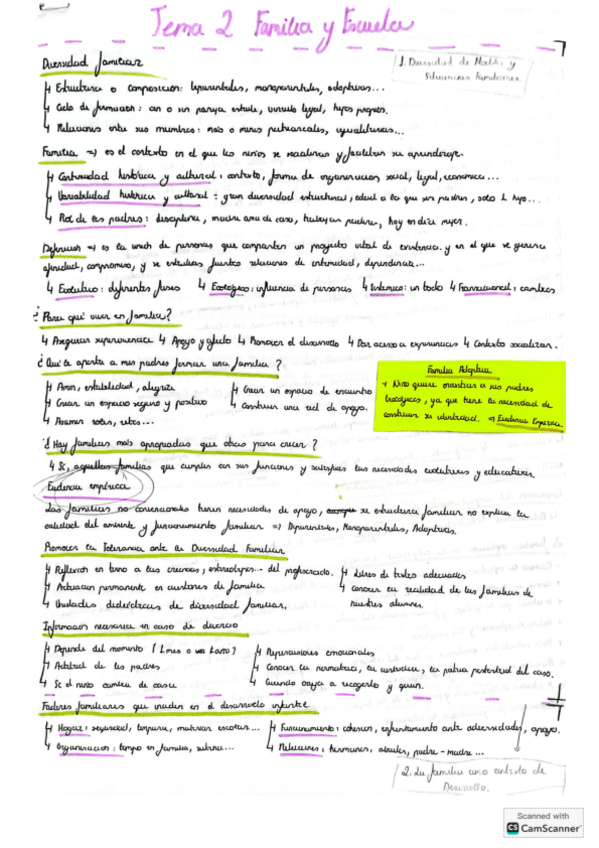 Tema 2 Familia y Escuela
1. Diversidad de Modelos y
Estructuras Familiares.
Diversidad familiar
↳ Estructura o composición: biparentales, monoparentales, adoptivas...
↳ Ciclo de formación: con o sin pareja estable, vínculo legal, hijos propios.
↳ Relaciones entre sus miembros: más o menos patriarcales, igualitarias...
Familia ⇒ es el contexto en el que los niños se socializan y facilitan su aprendizaje.
↳ Continuidad histórica y cultural: contexto, forma de organización social, legal, económica...
↳ Variabilidad histórica y cultural: gran diversidad estructural, edad a la que son padres, solo 1 hijo...
↳ Rol de los padres: disciplina, madre ama de casa, trabajan padres, hoy en día mejor.
Definición ⇒ es la unión de personas que comparten un proyecto vital de existencia y en el que se genera
afinidad, compromiso, y se establecen fuertes relaciones de intimidad, dependencia...
↳ Evolutivo: diferentes fases ↳ Ecológico: influencia de personas ↳ Sistémico: un todo ↳ Transaccional: cambios
¿Para qué vivir en familia?
↳ Asegurar supervivencia ↳ Apoyo y afecto ↳ Promover el desarrollo ↳ Dar acceso a experiencias ↳ Contexto socializador.
¿Qué te aporta a mis padres formar una familia?
↳ Amor, estabilidad, alegría
↳ Crear un espacio seguro y positivo
↳ Asumir retos, etc...
↳ Crear un espacio de encuentro
↳ Construir una red de apoyo.
Familia Adoptiva
→ Niño quiere encontrar a sus padres
biológicos, ya que tiene la necesidad de
construir su identidad. ⇒ Evidencia Empírica
¿Hay familias más apropiadas que otras para crecer?
↳ Sí, aquellas familias que cumplen con sus funciones y satisfacen las necesidades evolutivas y educativas.
Evidencia empírica
Las familias no convencionales tienen necesidades de apoyo, su estructura familiar no explica la
calidad del ambiente y funcionamiento familiar ⇒ Biparentales, Monoparentales, Adoptivas.
Promover la Tolerancia ante la Diversidad Familiar
↳ Reflexión en torno a las creencias, estereotipos... del profesorado.
↳ Actuación permanente en cuestiones de familia
↳ Unidades didácticas de diversidad familiar.
↳ Libros de texto adecuados
↳ Conocer la realidad de las familias de
nuestros alumnos.
Información necesaria en caso de divorcio
↳ Depende del momento (1 mes o un año)
↳ Actitud de los padres
↳ Si el niño cambia de casa
↳ Repercusiones emocionales
↳ Conocer la normativa, la custodia, la patria potestad del caso.
↳ Cuando vaya a recogerlo y quien.
Factores familiares que inciden en el desarrollo infantil
↳ Hogar: seguridad, limpieza, material escolar...
↳ Organización: tiempo en familia, rutina...
↳ Funcionamiento: cohesión, enfrentamiento ante adversidades, apoyo.
↳ Relaciones: hermanos, abuelos, padre-madre...
2. La familia como contexto de
Desarrollo.
Scanned with
CS CamScanner